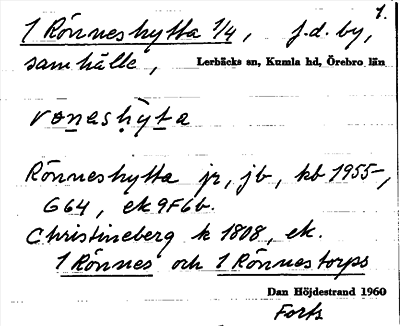 1.
1 Rönneshytta 1/4, f.d. by,
samhälle, Lerbäcks sn, Kumla hd, Örebro län
rönəshy̨ta
Rönneshytta jr, jb, kb 1955-,
G64, ek 9F6b.
Christineberg k 1808, ek.
1 Rönnes och 1 Rönnestorps
Dan Höjdestrand 1960
Forts